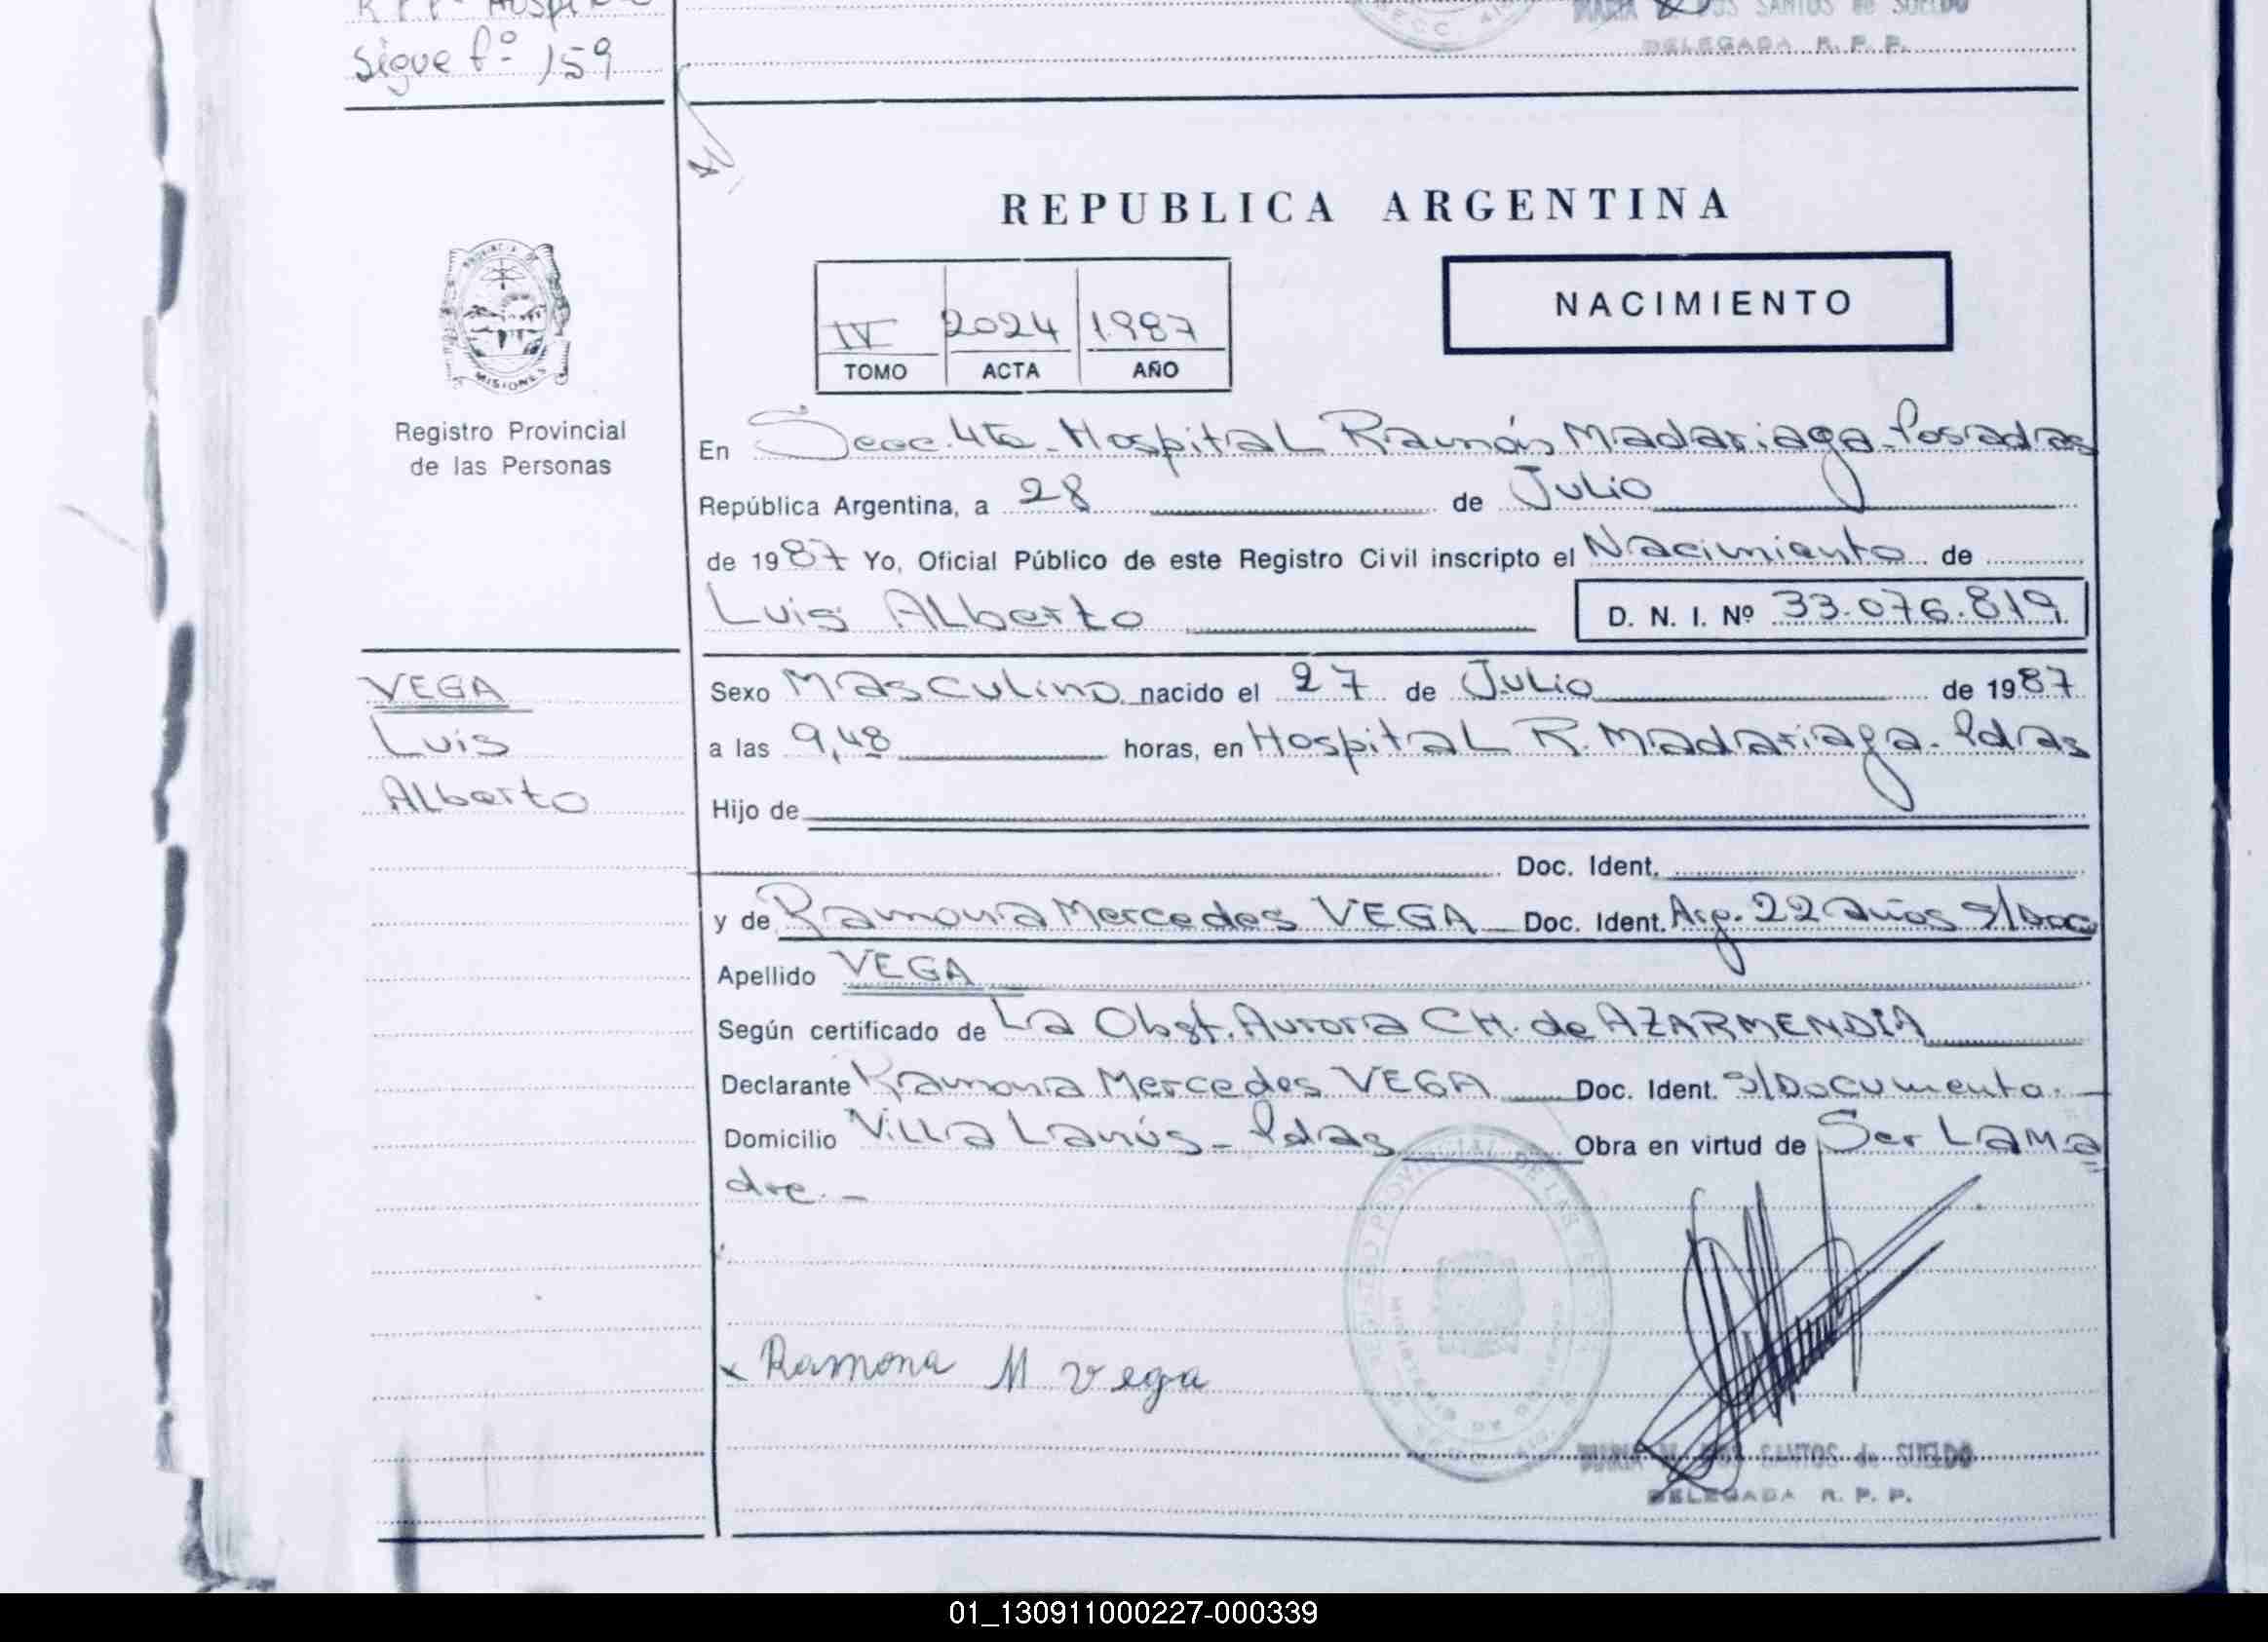 Sigue fº 159
MARIA DOS SANTOS de SUELDO
DELEGADA R. P. P.
REPUBLICA ARGENTINA
NACIMIENTO
IV 2024 1987
TOMO ACTA AÑO
MISIONES
Registro Provincial
de las Personas
En Secc. 4ta - Hospital Ramón Madariaga - Posadas
República Argentina, a 28 de Julio
de 1987 Yo, Oficial Público de este Registro Civil inscripto el Nacimiento de
Luis Alberto D. N. I. Nº 33.076.819
VEGA
Luis
Alberto
Sexo Masculino nacido el 27 de Julio de 1987
a las 9,48 horas, en Hospital R. Madariaga - Pdas
Hijo de
Doc. Ident.
y de Ramona Mercedes VEGA Doc. Ident. Arg. 22 años S/Doc
Apellido VEGA
Según certificado de La Obst. Aurora CH. de AZARMENDIA
Declarante Ramona Mercedes VEGA Doc. Ident. S/Documento.
Domicilio Villa Lanús - Pdas Obra en virtud de Ser La Ma
dre. -
x Ramona M Vega
SANTOS de SUELDO
DELEGADA R. P. P.
01_130911000227-000339